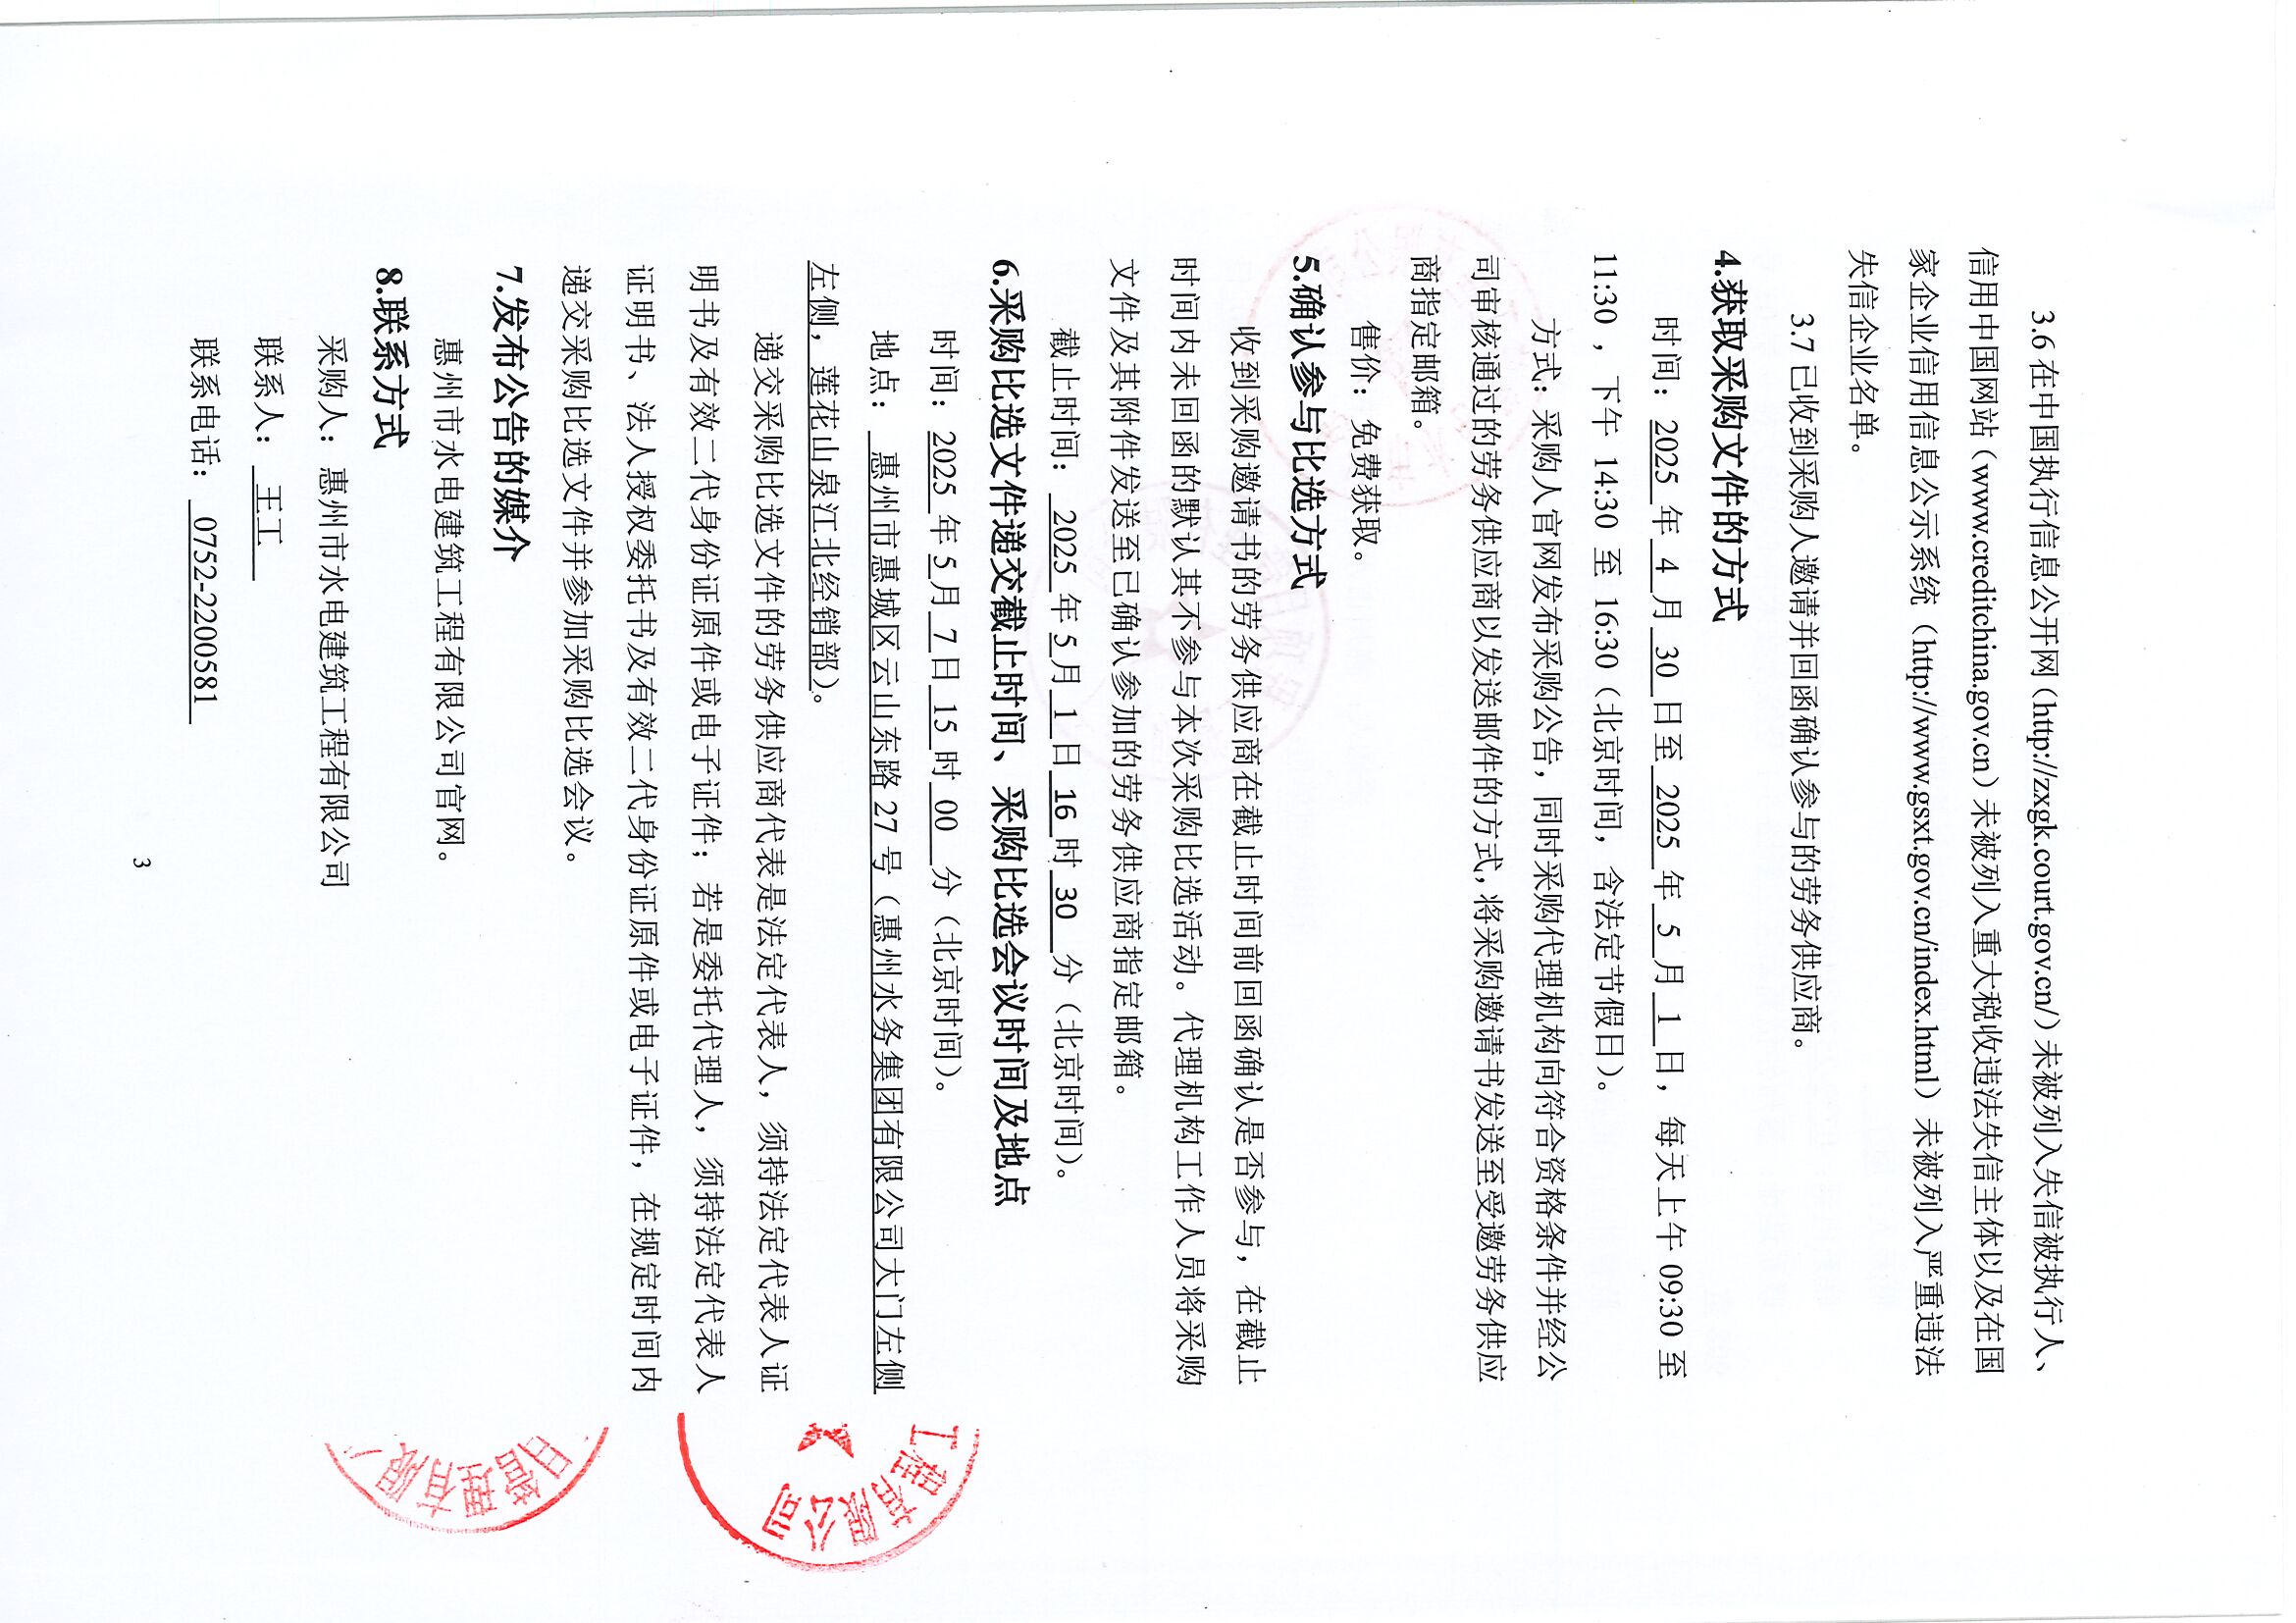 3.6 在中国执行信息公开网（http://zxgk.court.gov.cn/）未被列入失信被执行人、
信用中国网站（www.creditchina.gov.cn）未被列入重大税收违法失信主体以及在国
家企业信用信息公示系统（http://www.gsxt.gov.cn/index.html）未被列入严重违法
失信企业名单。
3.7 已收到采购人邀请并回函确认参与的劳务供应商。
4.获取采购文件的方式
时间：2025 年 4 月 30 日至 2025 年 5 月 1 日，每天上午 09:30 至
11:30 ，下午 14:30 至 16:30（北京时间，含法定节假日）。
方式：采购人官网发布采购公告，同时采购代理机构向符合资格条件并经公
司审核通过的劳务供应商以发送邮件的方式，将采购邀请书发送至受邀劳务供应
商指定邮箱。
售价：免费获取。
5.确认参与比选方式
收到采购邀请书的劳务供应商在截止时间前回函确认是否参与，在截止
时间内未回函的默认其不参与本次采购比选活动。代理机构工作人员将采购
文件及其附件发送至已确认参加的劳务供应商指定邮箱。
截止时间： 2025 年 5 月 1 日 16 时 30 分（北京时间）。
6.采购比选文件递交截止时间、采购比选会议时间及地点
时间：2025 年 5 月 7 日 15 时 00 分（北京时间）。
地点： 惠州市惠城区云山东路 27 号（惠州水务集团有限公司大门左侧
左侧，莲花山泉江北经销部）。
递交采购比选文件的劳务供应商代表是法定代表人，须持法定代表人证
明书及有效二代身份证原件或电子证件；若是委托代理人，须持法定代表人
证明书、法人授权委托书及有效二代身份证原件或电子证件，在规定时间内
递交采购比选文件并参加采购比选会议。
7.发布公告的媒介
惠州市水电建筑工程有限公司官网。
8.联系方式
采购人：惠州市水电建筑工程有限公司
联系人： 王工
联系电话： 0752-2200581
3
工程有限公司
目管理有限